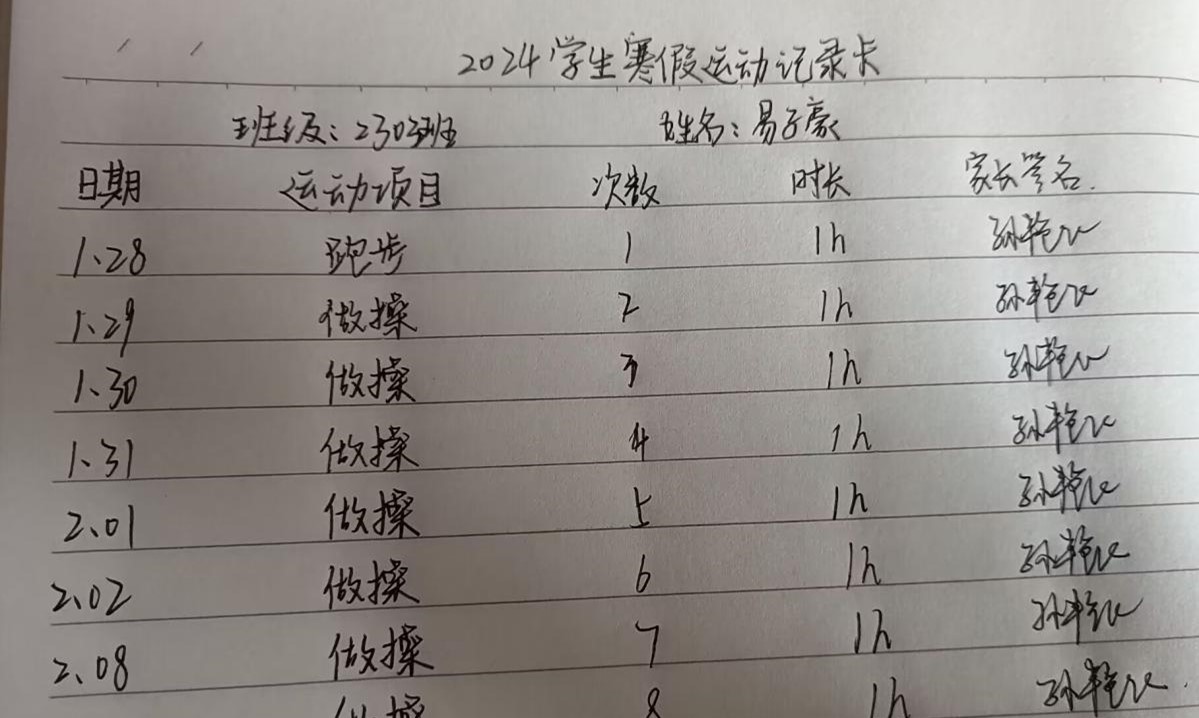 2024学生寒假运动记录卡
班级：2303班 姓名：易子豪
日期 运动项目 次数 时长 家长签名.
1、28 跑步 1 1h 孙艳
1、29 做操 2 1h 孙艳
1、30 做操 3 1h 孙艳
1、31 做操 4 1h 孙艳
2、01 做操 5 1h 孙艳
2、02 做操 6 1h 孙艳
2、08 做操 7 1h 孙艳
做操 8 1h 孙艳